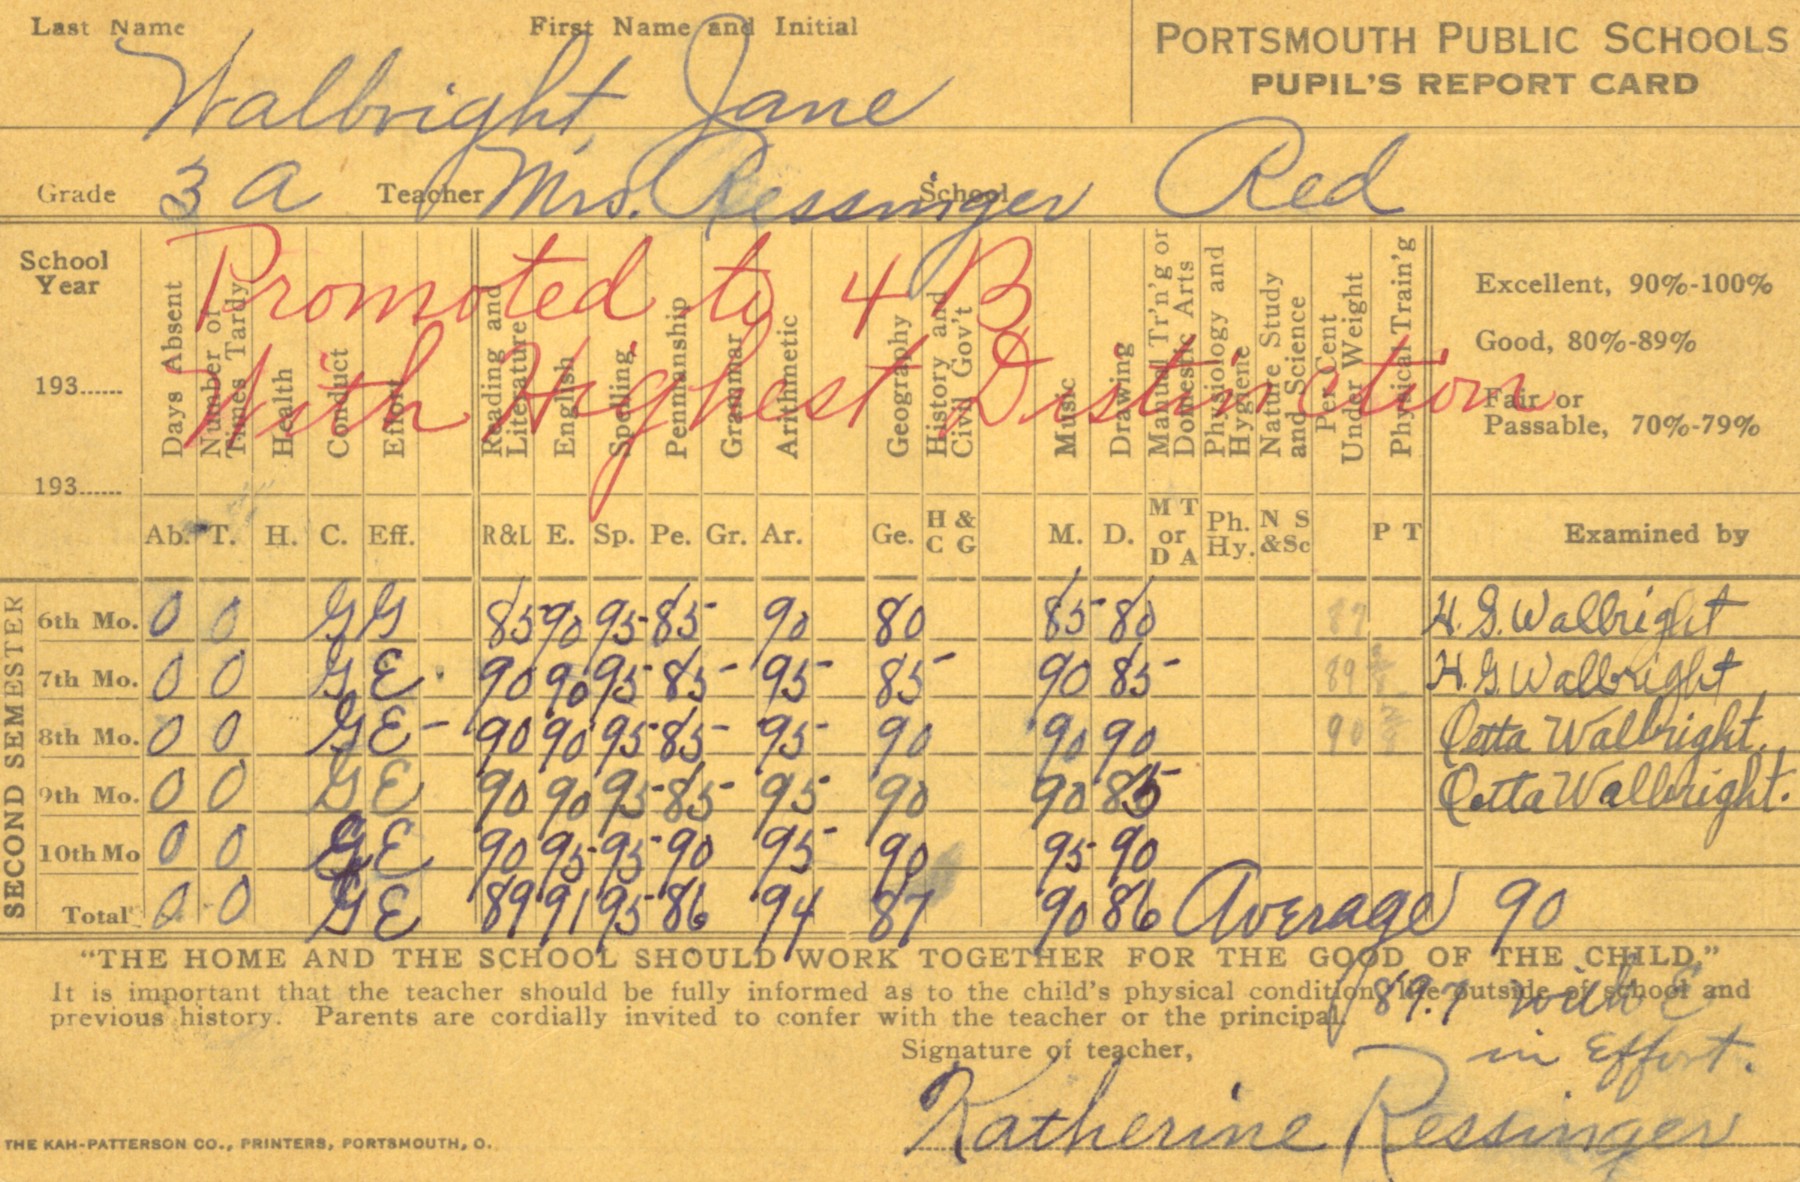 Last Name First Name and Initial PORTSMOUTH PUBLIC SCHOOLS
PUPIL'S REPORT CARD
Walbright, Jane
Grade 3 A Teacher Mrs. Ressinger School Red
Promoted to 4 B
With Highest Distinction
School Year
193......
193......
Days Absent
Number of Times Tardy
Health
Conduct
Effort
Reading and Literature
English
Spelling
Penmanship
Grammar
Arithmetic
Geography
History and Civil Gov't
Music
Drawing
Manual Tr'n'g or Domestic Arts
Physiology and Hygiene
Nature Study and Science
Per Cent Under Weight
Physical Train'g
Excellent, 90%-100%
Good, 80%-89%
Fair or
Passable, 70%-79%
Ab. T. H. C. Eff. R&L E. Sp. Pe. Gr. Ar. Ge. H & C G M. D. M T or D A Ph. Hy. N S &Sc P T Examined by
SECOND SEMESTER
6th Mo. 0 0 G G 85 90 95 85 90 80 85 80 87 H. G. Walbright
7th Mo. 0 0 G E 90 90 95 85 95 85 90 85 89 H. G. Walbright
8th Mo. 0 0 G E- 90 90 95 85 95 90 90 90 90 Walbright.
9th Mo. 0 0 G E 90 90 95 85 95 90 90 85 Walbright.
10th Mo 0 0 G E 90 95 95 90 95 90 95 90
Total 0 0 G E 89 91 95 86 94 87 90 86 Average 90
"THE HOME AND THE SCHOOL SHOULD WORK TOGETHER FOR THE GOOD OF THE CHILD."
It is important that the teacher should be fully informed as to the child's physical condition, life outside of school and
previous history. Parents are cordially invited to confer with the teacher or the principal.
89.7 with E
in Effort.
Signature of teacher,
Katherine Ressinger
THE KAH-PATTERSON CO., PRINTERS, PORTSMOUTH, O.